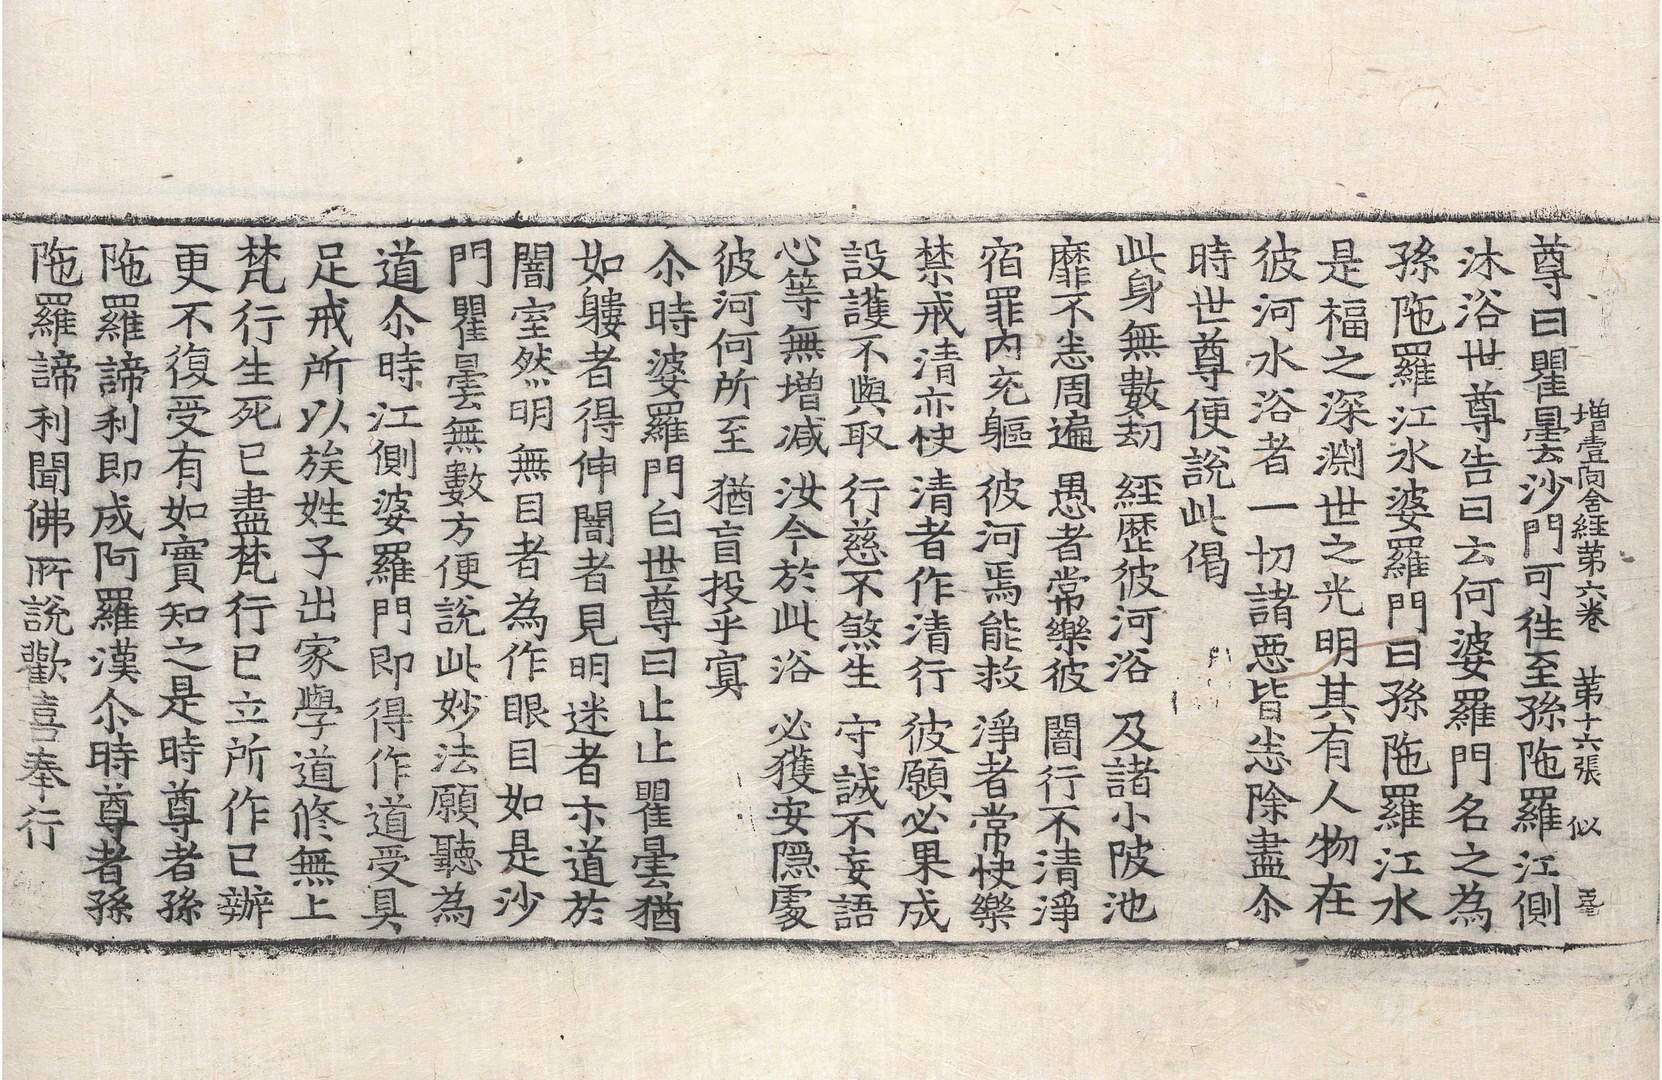 增壹阿含經第六卷 第十六張 似
尊曰瞿曇沙門可徃至孫陁羅江側
沐浴世尊告曰云何婆羅門名之為
孫陁羅江水婆羅門曰孫陁羅江水
是福之深淵世之光明其有人物在
彼河水浴者一切諸惡皆悉除盡尒
時世尊便說此偈
此身無數劫 經歷彼河浴 及諸小陂池
靡不悉周遍 愚者常樂彼 闇行不清淨
宿罪內充軀 彼河焉能救 淨者常快樂
禁戒清亦快 清者作清行 彼願必果成
設護不與取 行慈不煞生 守誠不妄語
心等無增減 汝今於此浴 必獲安隱處
彼河何所至 猶盲投乎冥
尒時婆羅門白世尊曰止止瞿曇猶
如軁者得伸闇者見明迷者示道於
闇室然明無目者為作眼目如是沙
門瞿曇無數方便說此妙法願聽為
道尒時江側婆羅門即得作道受具
足戒所以族姓子出家學道修無上
梵行生死已盡梵行已立所作已辦
更不復受有如實知之是時尊者孫
陁羅諦利即成阿羅漢尒時尊者孫
陁羅諦利聞佛所說歡喜奉行